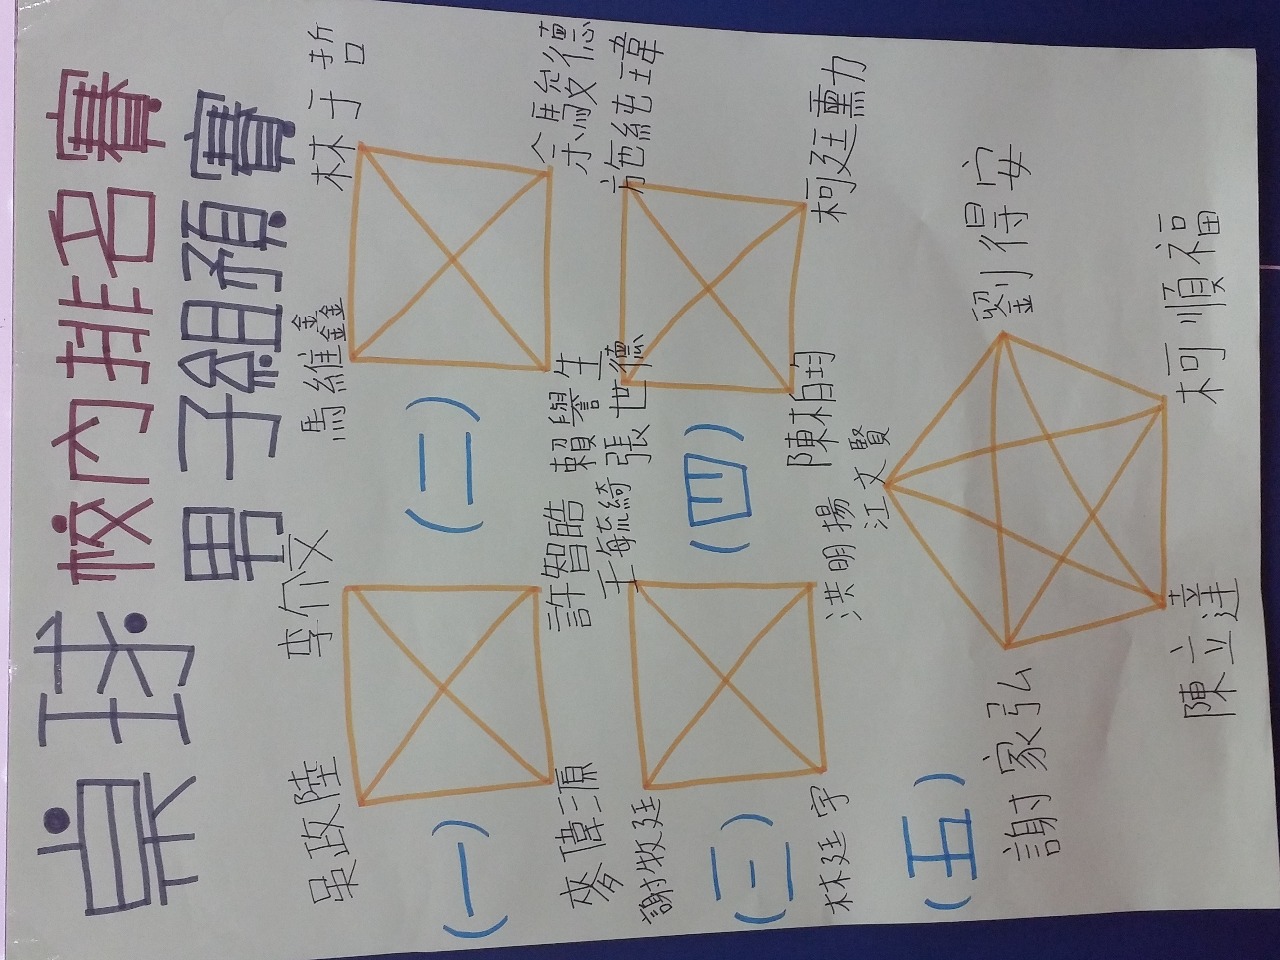 桌球校內排名賽
男子組預賽
吳政陸
李介文
馬維鑫
林于哲
(一)
(二)
麥偉源
許智皓
賴譽生
余駿德
謝牧廷
王毓綺
張世德
施純瑋
(三)
(四)
林廷宇
洪明揚
陳柏均
柯廷勳
江文賢
(五)
謝家弘
劉得安
陳立達
柯順福